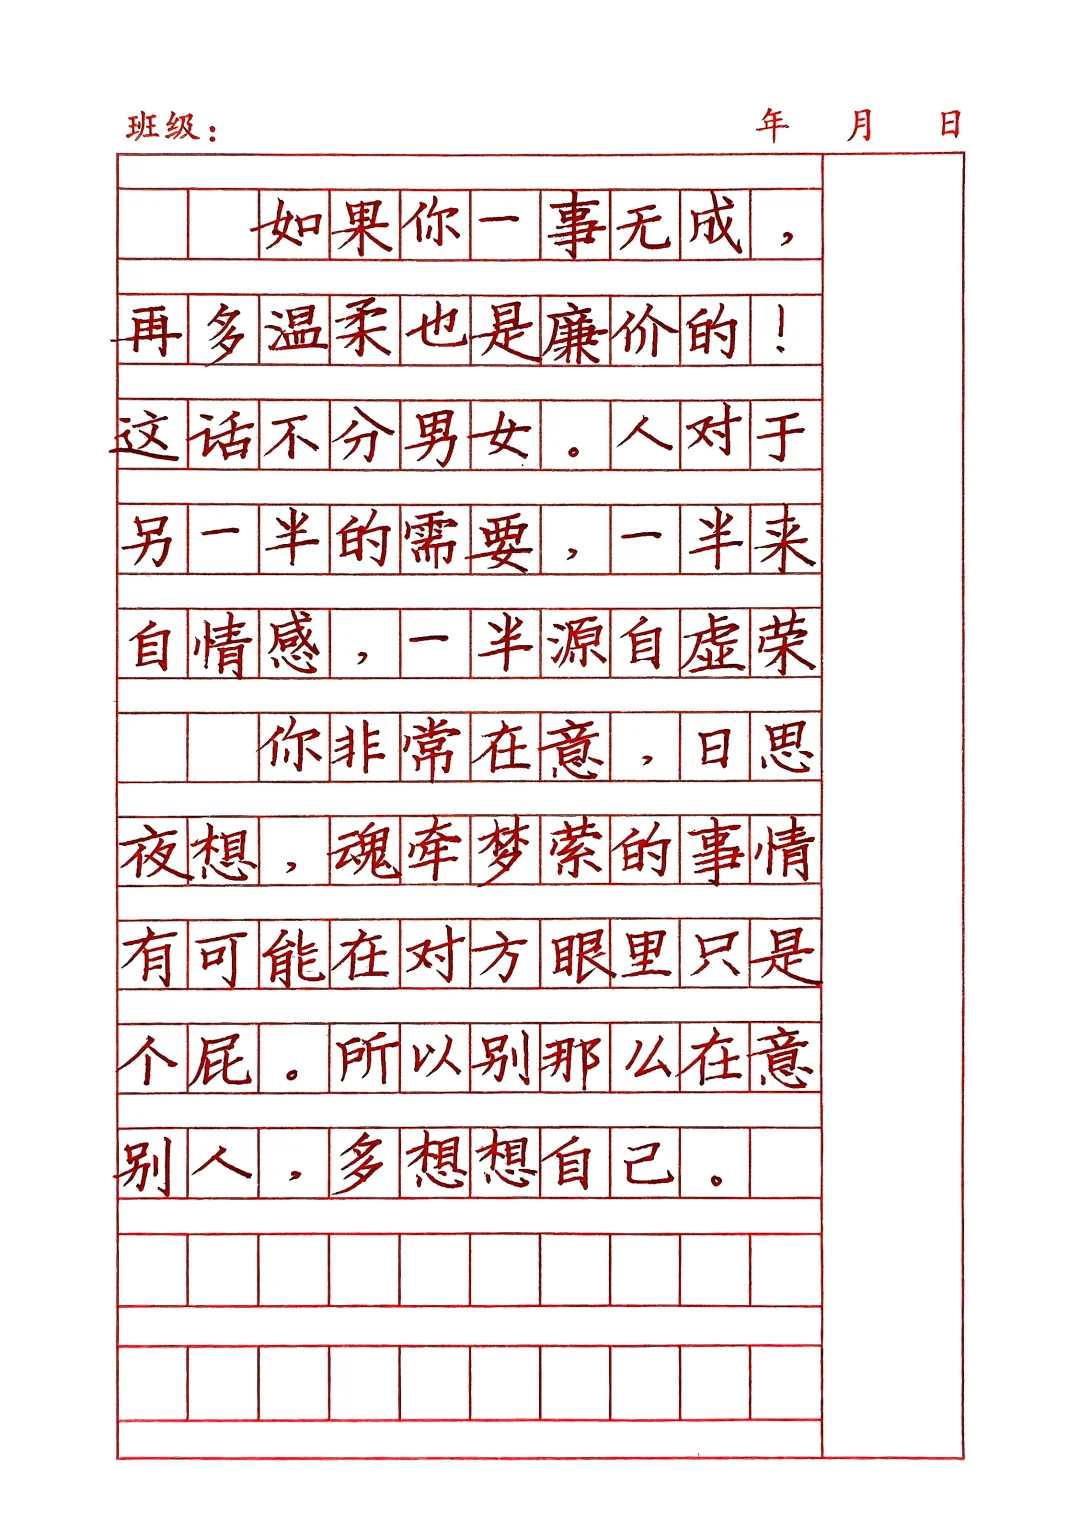 班级： 年 月 日
如果你一事无成，
再多温柔也是廉价的！
这话不分男女。人对于
另一半的需要，一半来
自情感，一半源自虚荣
你非常在意，日思
夜想，魂牵梦萦的事情
有可能在对方眼里只是
个屁。所以别那么在意
别人，多想想自己。